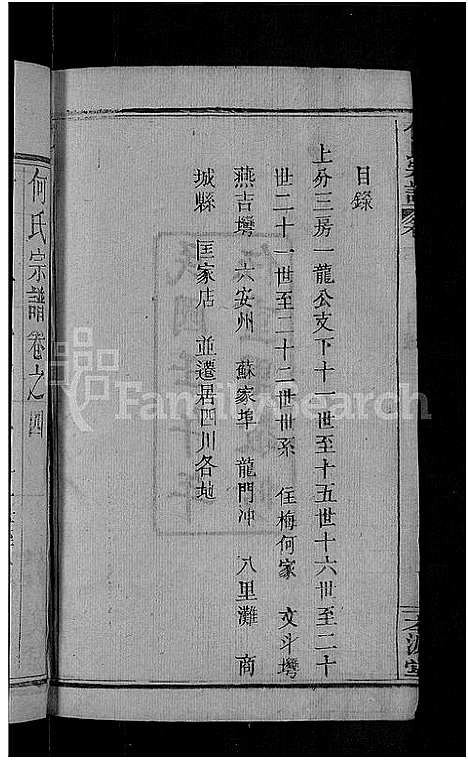 目錄
上分三房一龍公支下十一世至十五世十六世至二十
世二十一世至二十二世世系 住梅何家 文斗塆
燕吉塆 六安州 蘇家埠 龍門冲 八里灘 商
城縣 匡家店 並遷居四川各地
何氏宗譜卷之四
FamilySearch